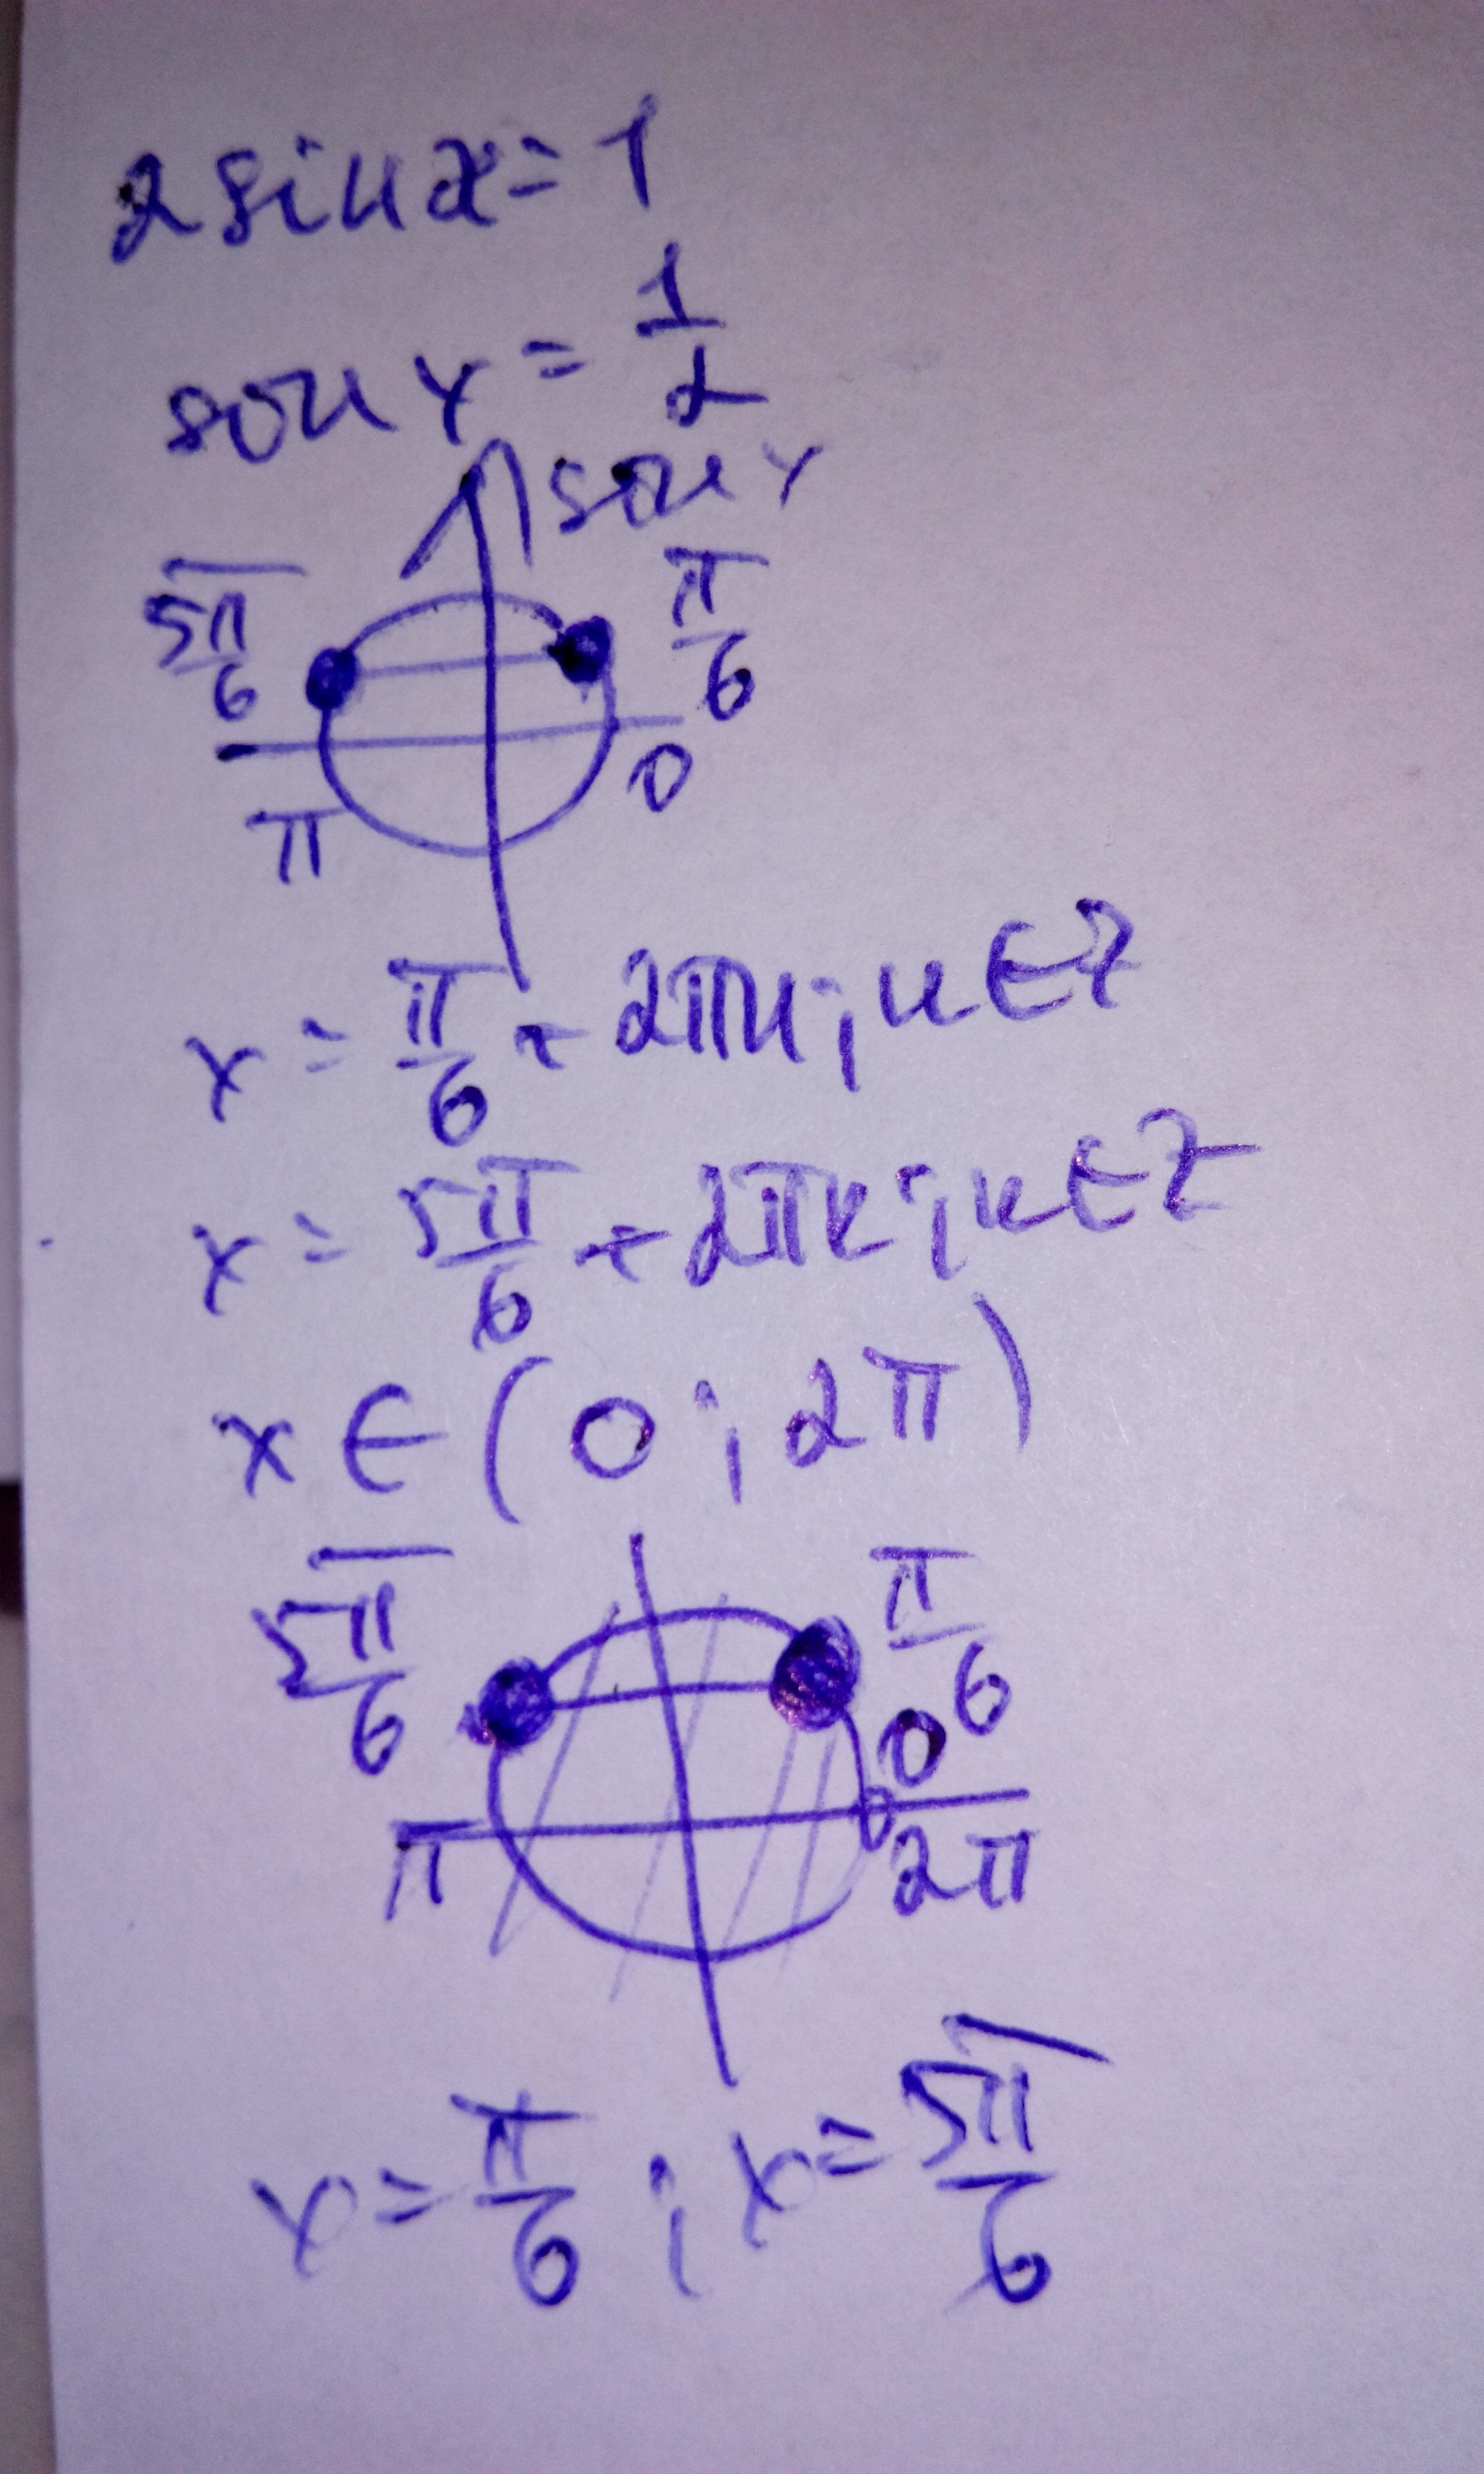 2 sin x = 1
sin x = 1/2
sin x
5π/6 π/6
π 0
x = π/6 + 2πn; n ∈ Z
x = 5π/6 + 2πk; k ∈ Z
x ∈ (0; 2π)
5π/6 π/6
0
π 2π
x = π/6; x = 5π/6